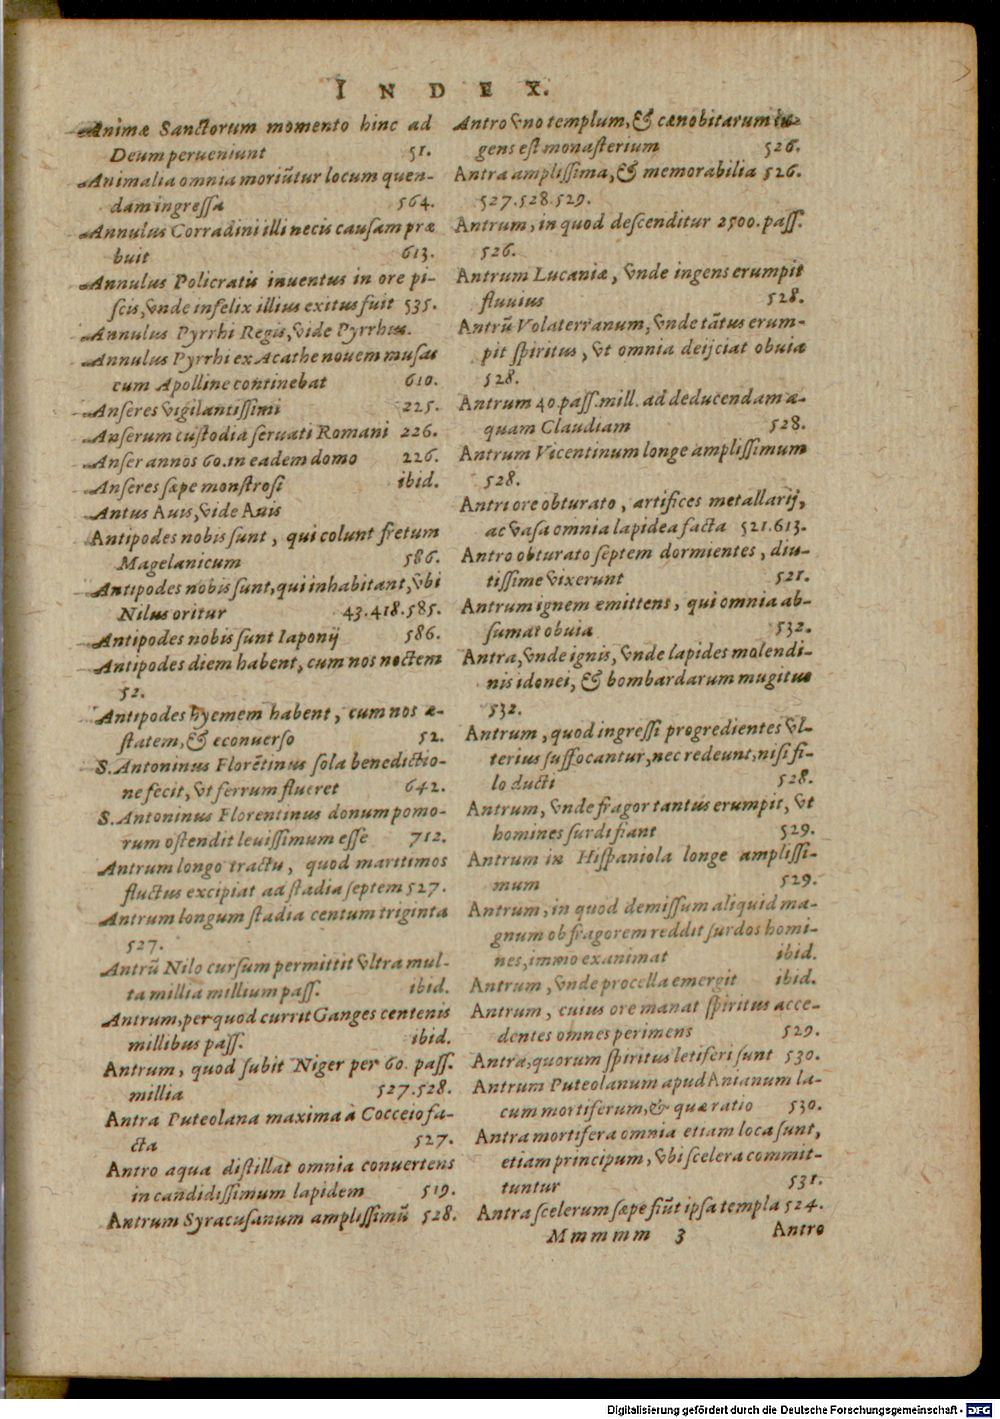 INDEX.
Animæ Sanctorum momento hinc ad
Deum perueniunt 51.
Animalia omnia moriũtur locum quen-
dam ingreſſa 564.
Annulus Corradini illi necis cauſam præ
buit 613.
Annulus Policratis inuentus in ore pi-
ſcis, vnde infelix illius exitus fuit 535.
Annulus Pyrrhi Regis, vide Pyrrhus.
Annulus Pyrrhi ex Acathe nouem muſas
cum Apolline continebat 610.
Anſeres vigilantiſſimi 225.
Anſerum cuſtodia ſeruati Romani 226.
Anſer annos 60. in eadem domo 226.
Anſeres ſæpe monſtroſi ibid.
Antus Auis, vide Auis
Antipodes nobis ſunt, qui colunt fretum
Magelanicum 586.
Antipodes nobis ſunt, qui inhabitant, vbi
Nilus oritur 43.418.585.
Antipodes nobis ſunt Iaponij 586.
Antipodes diem habent, cum nos noctem
52.
Antipodes hyemem habent, cum nos æ-
ſtatem, & econuerſo 52.
S. Antoninus Florẽtinus ſola benedictio-
ne fecit, vt ferrum flueret 642.
S. Antoninus Florentinus donum pomo-
rum oſtendit leuiſſimum eſſe 712.
Antrum longo tractu, quod maritimos
fluctus excipiat ad ſtadia ſeptem 527.
Antrum longum ſtadia centum triginta
527.
Antrũ Nilo curſum permittit vltra mul-
ta millia millium paſſ. ibid.
Antrum, per quod currit Ganges centenis
millibus paſſ. ibid.
Antrum, quod ſubit Niger per 60. paſſ.
millia 527.528.
Antra Puteolana maxima à Cocceio fa-
cta 527.
Antro aqua diſtillat omnia conuertens
in candidiſſimum lapidem 519.
Antrum Syracuſanum ampliſſimũ 528.
Antro vno templum, & cænobitarum in-
gens eſt monaſterium 526.
Antra ampliſſima, & memorabilia 526.
527.528.529.
Antrum, in quod deſcenditur 2500. paſſ.
526.
Antrum Lucaniæ, vnde ingens erumpit
fluuius 528.
Antrũ Volaterranum, vnde tãtus erum-
pit ſpiritus, vt omnia deijciat obuia
528.
Antrum 40. paſſ. mill. ad deducendam a-
quam Claudiam 528.
Antrum Vicentinum longe ampliſſimum
528.
Antri ore obturato, artifices metallarij,
ac vaſa omnia lapidea facta 521.613.
Antro obturato ſeptem dormientes, diu-
tiſſime vixerunt 521.
Antrum ignem emittens, qui omnia ab-
ſumat obuia 532.
Antra, vnde ignis, vnde lapides molendi-
nis idonei, & bombardarum mugitus
532.
Antrum, quod ingreſſi progredientes vl-
terius ſuffocantur, nec redeunt, niſi fi-
lo ducti 528.
Antrum, vnde fragor tantus erumpit, vt
homines ſurdi fiant 529.
Antrum in Hiſpaniola longe ampliſſi-
mum 529.
Antrum, in quod demiſſum aliquid ma-
gnum ob fragorem reddit ſurdos homi-
nes, immo exanimat ibid.
Antrum, vnde procella emergit ibid.
Antrum, cuius ore manat ſpiritus acce-
dentes omnes perimens 529.
Antra, quorum ſpiritus letiferi ſunt 530.
Antrum Puteolanum apud Anianum la-
cum mortiferum, & quæ ratio 530.
Antra mortifera omnia etiam loca ſunt,
etiam principum, vbi ſcelera commit-
tuntur 531.
Antra ſcelerum ſæpe fiũt ipſa templa 524.
Mmmmm 3 Antro
Digitalisierung gefördert durch die Deutsche Forschungsgemeinschaft - DFG